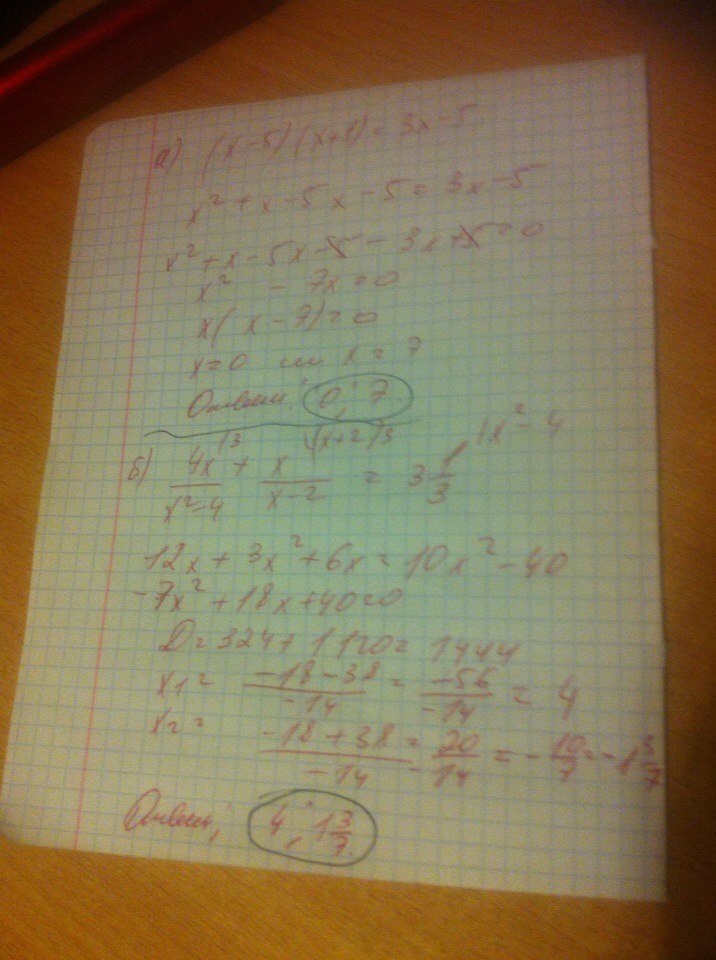 а) (x-5)(x+1)=3x-5
x²+x-5x-5=3x-5
x²+x-5x-5-3x+5=0
x² - 7x=0
x(x-7)=0
x=0 или x=7
Ответ: 0; 7.
б) 4x/(x²-4) |3 + x/(x-2) |(x+2)3 = 3 1/3 |x²-4
12x+3x²+6x=10x²-40
-7x²+18x+40=0
D=324+1120=1444
x₁= (-18-38)/(-14) = (-56)/(-14) = 4
x₂= (-18+38)/(-14) = 20/(-14) = -10/7 = -1 3/7
Ответ: 4; 1 3/7